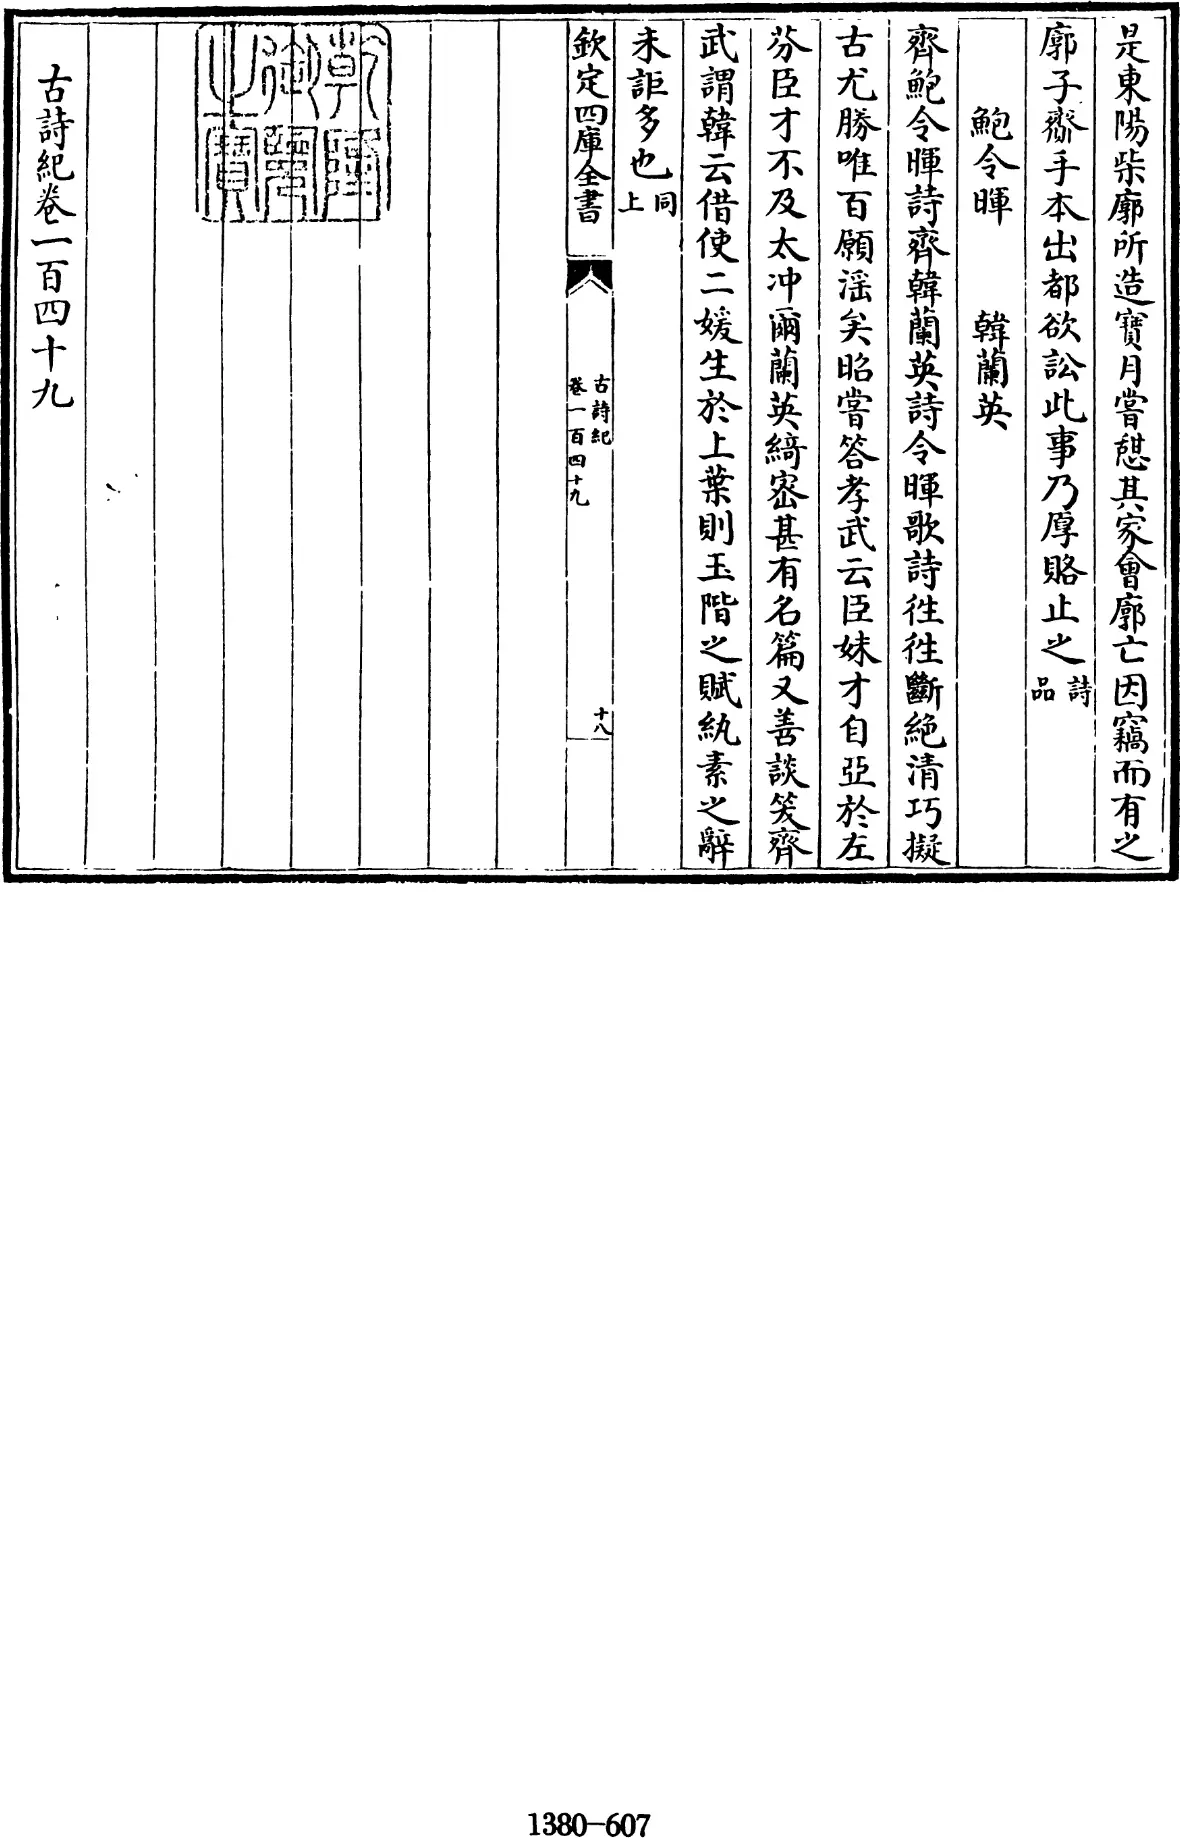 是東陽柴廓所造寶月嘗憇其家會廓亡因竊而有之
廓子齎手本出都欲訟此事乃厚賂止之詩品
鮑令暉　韓蘭英
齊鮑令暉詩齊韓蘭英詩令暉歌詩徃徃斷絶清巧擬
古尤勝唯百願淫矣昭嘗答孝武云臣妹才自亞於左
芬臣才不及太冲爾蘭英綺宻甚有名篇又善談笑齊
武謂韓云借使二媛生於上葉則玉階之賦紈素之辭
未詎多也同上
欽定四庫全書
古詩紀
卷一百四十九
十八
乾隆御覽之寶
古詩紀卷一百四十九
1380-607